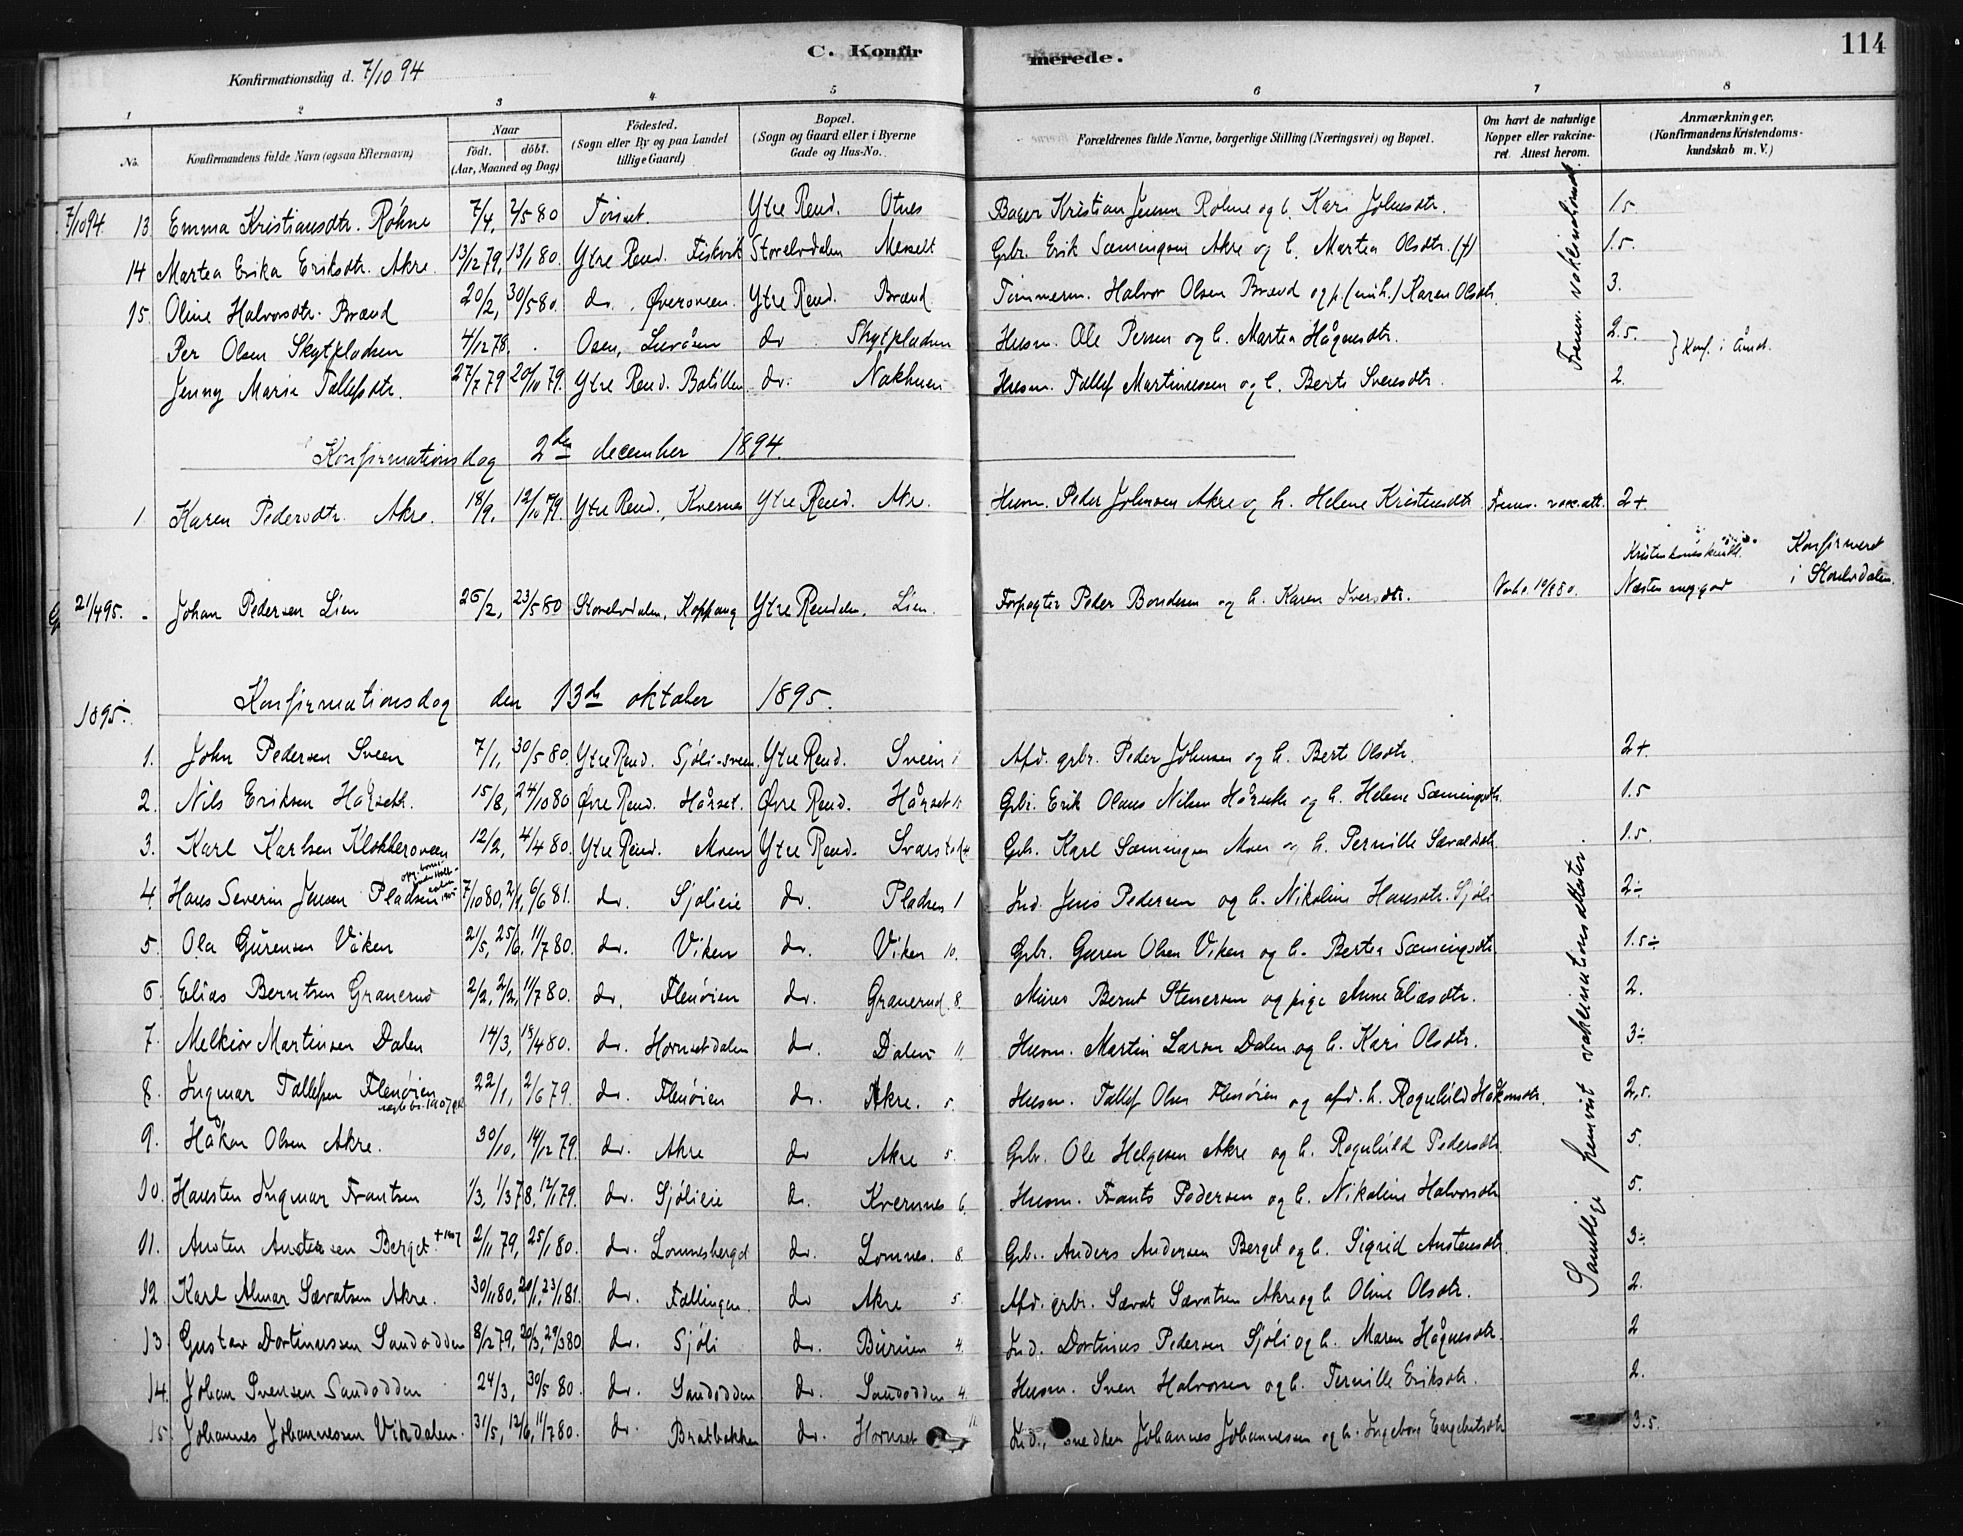 C. Konfir merede. 114
Konfirmationsdag d. 7/10 94
1 2 3 4 5 6 7 8
No. Konfirmandens fulde Navn (ogsaa Efternavn) Naar födt. döbt. (Aar, Maaned og Dag) Födested. (Sogn eller By og paa Landet tillige Gaard) Bopæl. (Sogn og Gaard eller i Byerne Gade og Hus-No. Forældrenes fulde Navne, borgerlige Stilling (Næringsvei) og Bopæl. Om havt de naturlige Kopper eller vakcineret. Attest herom. Anmærkninger. (Konfirmandens Kristendomskundskab m. V.)
7/10 94 13 Emma Kristiansdtr. Røhne 7/4, 2/5 80 Ytre Rend. Otnes Kristian Jensen Røhne og h. Kari Johnsdtr. 1.5
14 Martea Erika Eriksdtr. Akre. 13/12 79, 13/1 80. Ytre Rend. Fiskvik Storelvdalen Messelt Gbr. Erik Sæmingsen Akre og h. Martea Olsdtr. (†) 1.5.
15. Oline Halvorsdtr. Brænd 20/2, 30/5 80. do. Øverøveen. Ytre Rend. Brænd Tømmerm. Halvor Olsen Brænd og p. Karen Olsdtr. 3.
Per Olsen Skytpladsen 4/12 78. Osen, do Skytpladsen Husm. Ole Persen og h. Martea Hågensdtr. 2.5. } Konf. i Åmot.
Jenny Marie Tollefsdtr. 27/7 79 20/10 79. Ytre Rend. do. Nokhuen Husm. Tollef Martinussen og h. Berte Svensdtr. 2.
Konfirmationsdag 2den december 1894.
1 Karen Pedersdtr. Akre. 18/9, 12/10 79. Ytre Rend., Kvernes Ytre Rend. Akre. Husm. Peder Johnsen Akre og h. Helene Kristensdtr. Fremv. vakc.att. 2+.
G 21/4 95. - Johan Pedersen Lien 26/2, 23/5 80 Storelvdalen, Koppang Ytre Rendalen, Lien. Forpagter Peder Bondesen og h. Karen Iversdtr. Næsten meget god Konfirmeret i Storelvdalen.
1895. Konfirmationsdag den 13de oktober 1895.
1. John Pedersen Sveen 7/1, 30/5 80. Ytre Rend. Sjøli-sveen. Ytre Rend. Sveen 1 Afd. grbr. Peder Johnsen og h. Berte Olsdtr. 2+.
2. Nils Eriksen Hårseth. 15/8, 24/10 80 Øvre Rend. Hårset. Øvre Rend. Hårset Gbr. Erik Olaus Nilsen Hårseth og h. Helene Sæmingsdtr. 1.5
3. Karl Karlsen Klokkerøveen 12/2, 4/4 80. Ytre Rend. Moen Ytre Rend. Gbr. Karl Sæmingsen Moen og h. Pernille Sævaldsdtr. 1.5.
4. Hans Severin Jensen Pladsen 7/10 80, 2/1, 6/6 81. do. Sjølieie do. Pladsen 1 Ind. Jens Pedersen og h. Nikoline Hansdtr. Sjøli 2÷
5. Ola Gurensen Viken 21/5, 25/6, 11/7 80. do. Viken do. Viken 10. Gbr. Guren Olsen Viken og h. Bertea Sæmingsdtr. 1.5÷
6. Elias Berntsen Granerud 2/2, 2/2, 11/7 80. do. Flenøien do. Granerud. 8. Murer Bernt Stenersen og pige Anne Eliasdtr. 2.
7. Melkior Martinsen Dalen 14/3, 18/4 80. do. Hornsetdalen do. Dalen 11. Husm. Martin Larsen Dalen og h. Kari Olsdtr. 3÷
8. Ingmar Tollefsen Flenøien 22/1, 2/6 79. do. Flenøien do. Akre. 5. Husm. Tollef Olsen Flenøien og afd. h. Ragnhild Håkonsdtr. 2.5.
9. Håkon Olsen Akre. 30/10, 14/12 79. do. Akre do Akre 5. Gbr. Ole Helgesen Akre og h. Ragnhild Pedersdtr. 5.
10. Hansten Ingmar Frantsen 1/3, 1/3 78, 12/1 79. do. Sjølieie do. Kvernnes 6. Husm. Frants Pedersen og h. Nikoline Halvorsdtr 5.
11. Austen Andersen Berget. +1907 2/11 79, 25/1 80. do. Lomnesberget do. Lomnes. 8. Gbr. Anders Andersen Berget og h. Sigrid Austensdtr. 3÷
12. Karl Almar Sævatsen Akre. 30/11 80, 20/1, 23/1 81. do. Fællingen. do Akre 5. Afd. grbr. Sævat Sævatsen Akre og h. Oline Olsdtr. 2.
13. Gustav Dortinussen Sandodden 8/12 79, 20/3, 29/3 80 do. Sjøli do. Buruen 4. Ind. Dortinus Pedersen Sjøli og h. Maren Hågensdtr. 2
14. Johan Svensen Sandodden 24/3, 30/5 80. do. Sandodden do. Sandodden 4. Husm. Sven Halvorsen og h. Pernille Eriksdtr. 2.
15. Johannes Johannessen Vikdalen. 31/5, 12/6, 11/7 80. do. Bratbakken do. Hornset 11. Ind., snedker Johannes Johannessen og h. Ingeborg Engebretsdtr 3.5.
Samtlige fremvist vakcinationsattester.